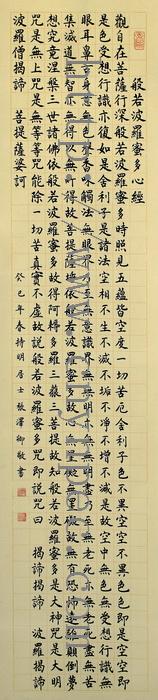 般若波羅蜜多心經
觀自在菩薩行深般若波羅蜜多時照見五蘊皆空度一切苦厄舍利子色不異空空不異色色即是空空即
是色受想行識亦復如是舍利子是諸法空相不生不滅不垢不淨不增不減是故空中無色無受想行識無
眼耳鼻舌身意無色聲香味觸法無眼界乃至無意識界無無明亦無無明盡乃至無老死亦無老死盡無苦
集滅道無智亦無得以無所得故菩提薩埵依般若波羅蜜多故心無罣礙無罣礙故無有恐怖遠離顛倒夢
想究竟涅槃三世諸佛依般若波羅蜜多故得阿耨多羅三藐三菩提故知般若波羅蜜多是大神咒是大明
咒是無上咒是無等等咒能除一切苦真實不虛故說般若波羅蜜多咒即說咒曰 揭諦 揭諦 波羅揭諦
波羅僧揭諦 菩提薩婆訶
癸巳年春持明居士張澤卿敬書